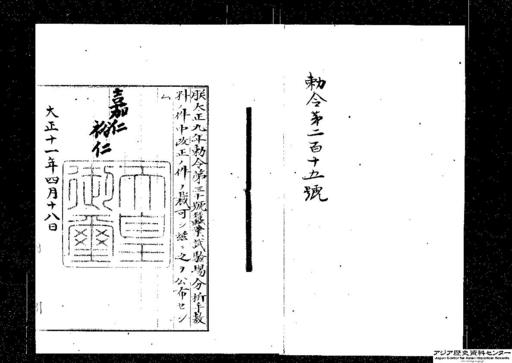 勅令第二百十五號
朕大正九年勅令第三十號蠶業試驗場分析手數
料ノ件中改正ノ件ヲ裁可シ茲ニ之ヲ公布セシ
ム
嘉仁
裕仁
天皇
御璽
大正十一年四月十八日
アジア歴史資料センター
Japan Center for Asian Historical Records